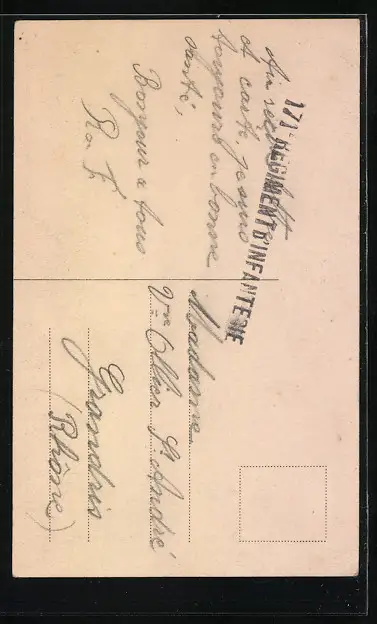 171e REGIMENT D'INFANTERIE
Au reçu lettre
et carte, je suis
toujours en bonne
santé,
Bonjour a tous
Madame
Vve Ollier St André
Grandris
(Rhône)